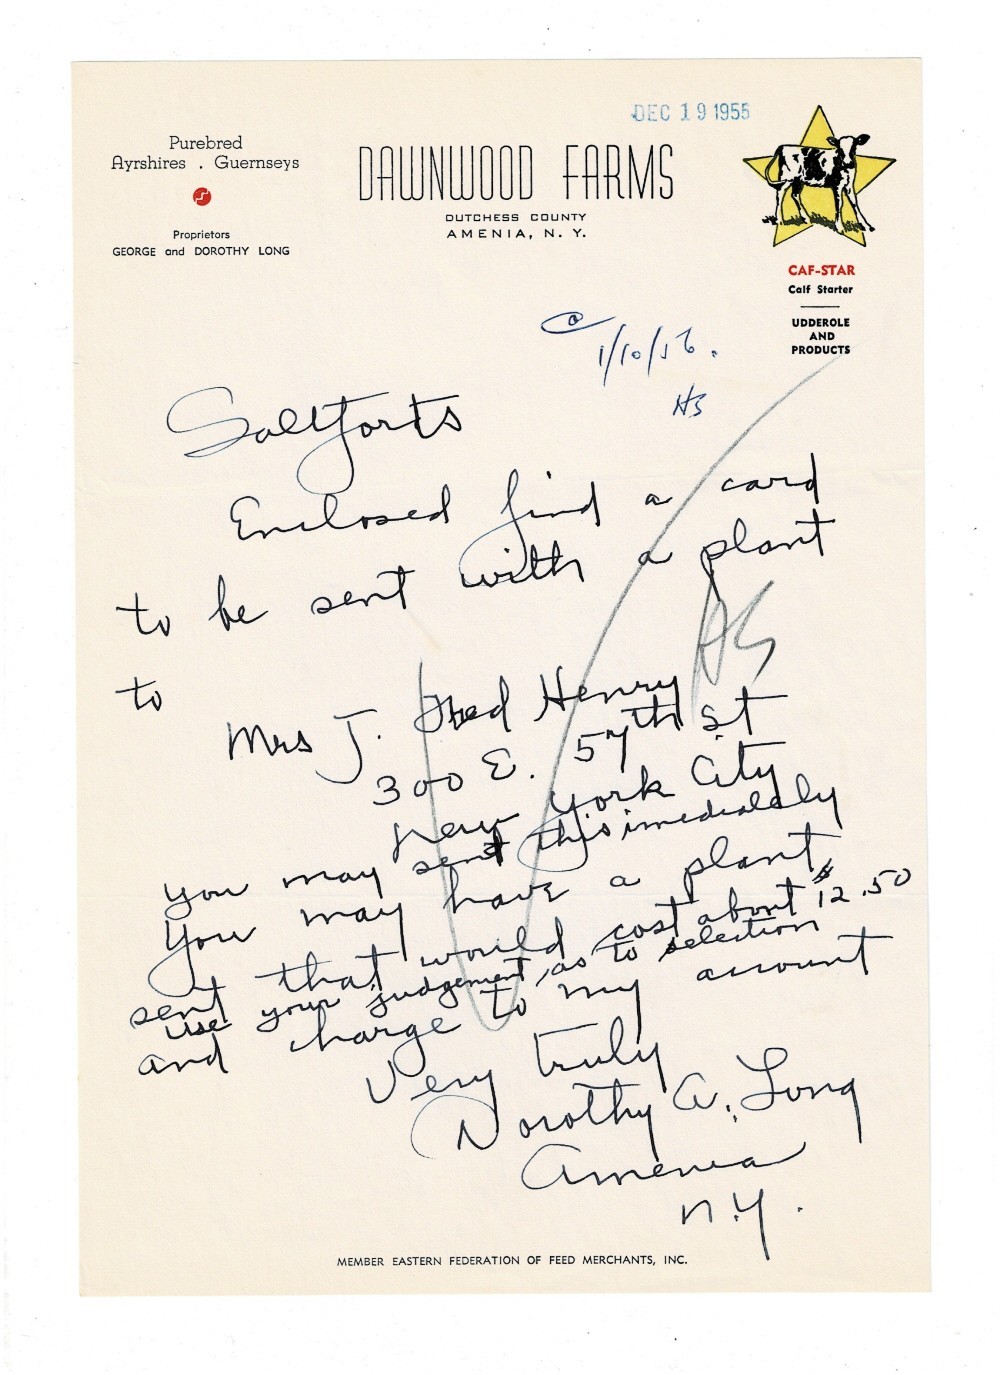 DEC 19 1955
Purebred
Ayrshires . Guernseys
Proprietors
GEORGE and DOROTHY LONG
DAWNWOOD FARMS
DUTCHESS COUNTY
AMENIA, N. Y.
CAF-STAR
Calf Starter
UDDEROLE
AND
PRODUCTS
1/10/56.
HS
Saltforts
Enclosed find a card
to be sent with a plant
to
HS
Mrs J. Fred Henry
300 E. 57th St
New York City
You may send this imediately
You may have a plant
sent that would cost about $12.50
use your judgement as to selection
and charge to my account
Very truly
Dorothy A. Long
Amenia
N.Y.
MEMBER EASTERN FEDERATION OF FEED MERCHANTS, INC.